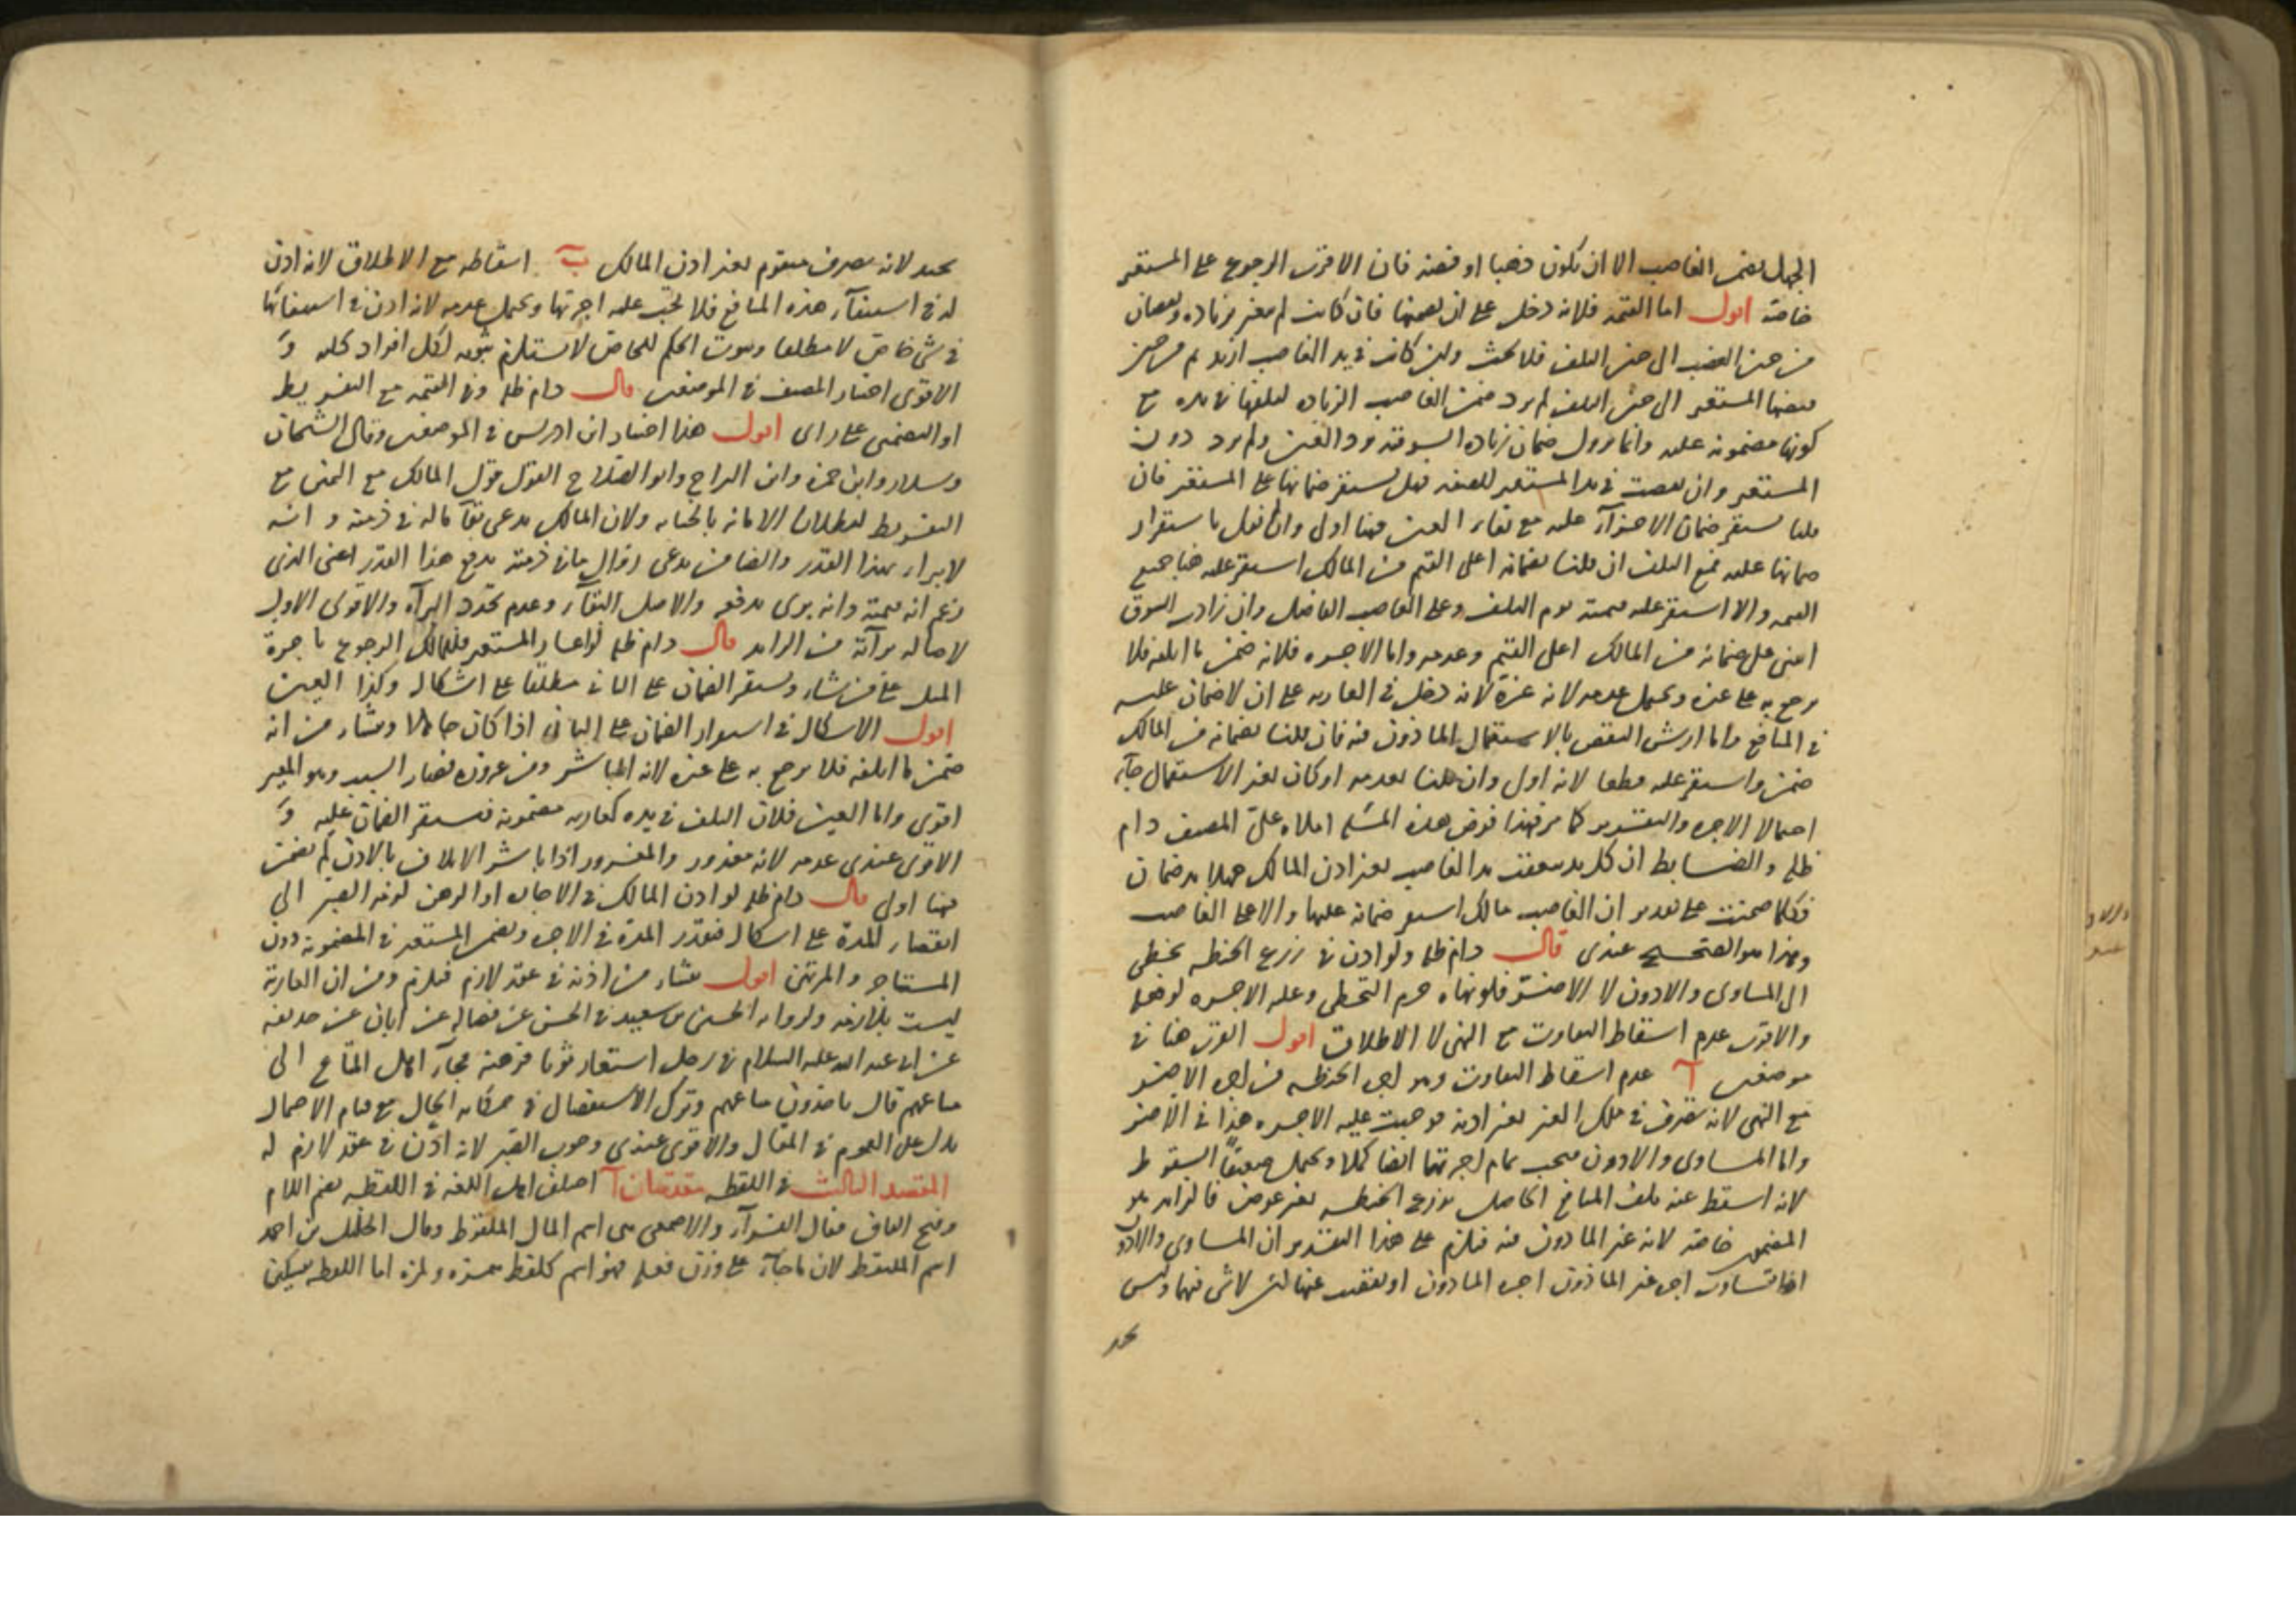 الجهل يضمن الغاصب الا ان تكون ذهبا او فضة فان الاقرب الرجوع على المستعير
خاصة اقول اما القيمة فلانه دخل على ان يضمنها فان كانت لم يتغير بزيادة ونقصان
من حين الغصب الى حين التلف فلا بحث وان كانت في يد الغاصب ازيد ثم من حين
المستعير الى حين التلف لم يزد ضمن الغاصب الزيادة لتلفها في يده مع
كونها مضمونة عليه وانما يزول ضمان زيادة السوقية برد العين ولم يرد دون
المستعير وان نقصت في يد المستعير للصفة فهل يستقر ضمانها على المستعير فان
قلنا يستقر ضمان الاجزآء عليه مع بقاء العين فهنا اولى وان لم نقل باستقرار
ضمانها عليه فمع التلف ان قلنا بضمانه اعلى القيم من المالك استقر عليه هنا جميع
القيمة والا استقر عليه قيمته يوم التلف وعلى الغاصب الفاضل وان زادت السوق
ابتنى على ضمانه من المالك اعلى القيم وعدمه واما الاجرة فلانه ضمن ما اتلفه فلا
يرجع به على غيره ويحتمل عدمه لانه غره لانه دخل في العارية على ان لا ضمان عليه
في المنافع واما ارش النقص بالاستعمال الماذون فيه فان قلنا بضمانه من المالك
ضمن واستقر عليه قطعا لانه اولى وان قلنا بعدمه او كان بغير الاستعمال جآء
احتمالا الاجرة والتقدير كما مر فهذا فرض هذه المسئلة املاه علىّ المصنف دام
ظله والضابط ان كل يد تعقبت يد الغاصب بغير اذن المالك جهلا يد ضمان
فكلما ضمنت على تقدير ان الغاصب مالك استقر ضمانه عليها والا على الغاصب
وهذا هو الصحيح عندي قال دام ظله ولو اذن في زرع الحنطة تخطى
الى المساوى والادون لا الاضر فلو نهاه حرم التخطى وعليه الاجرة لو فعله
والاقرب عدم اسقاط التفاوت مع النهى لا الاطلاق اقول القرب هنا في
موضعين آ عدم اسقاط التفاوت وهو اجرة الحنطة من اجرة الاضر
مع النهى لانه تصرف في ملك الغير بغير اذنه فوجبت عليه الاجرة هذا في الاضر
واما المساوى والادون فيجب تمام اجرتهما ايضا كملا ويحتمل ضعيفا السقوط
لانه اسقط عنه تلف المنافع الحاصل بزرع الحنطة بغير عوض فالزايد هو
المضمون خاصة لانه غير الماذون فيه فيلزم على هذا التقدير ان المساوى والادون
اذا تساوت اجرة غير الماذون اجرة الماذون او نقصت عنها لا شي فيهما وليس
بحد لانه تصرف متقوم بغير اذن المالك ب اسقاطه مع الاطلاق لانه اذن
له في استيفآء هذه المنافع فلا تجب عليه اجرتها ويحتمل عدمه لانه اذن في استيفائها
في شي خاص لا مطلقا وثبوت الحكم للخاص لا يستلزم ثبوته لكل افراد كليه و
الاقوى اختيار المصنف في الموضعين قال دام ظله وفي القيمة مع التفريط
او التضمين على راى اقول هذا اختيار ابن ادريس في الموضعين وقال الشيخان
وسلار وابن حمزة وابن البراج وابو الصلاح القول قول المالك مع اليمين مع
التفريط لبطلان الامانة بالخيانة ولان المالك يدعى بقآء ماله في ذمته وانه
لا يبرا بهذا القدر والضامن يدعى زوال ما في ذمته بدفع هذا القدر اعنى الذى
زعم انه قيمته وانه برى بدفعه والاصل البقآء وعدم تجدد البرآءة والاقوى الاول
لاصالة برآءته من الزايد قال دام ظله لو اعار المستعير فللمالك الرجوع باجرة
المثل على من شاء ويستقر الضمان على الثاني مطلقا على اشكال وكذا العين
اقول الاشكال في استقرار الضمان على الثاني اذا كان جاهلا ومنشاء من انه
ضمن ما اتلفه فلا يرجع به على غيره لانه المباشر ومن غروره فصار السبب وهو المعير
اقوى واما العين فلان التلف في يده كعارية مضمونة فيستقر الضمان عليه و
الاقوى عندى عدمه لانه مغرور والمغرور اذا باشر الاتلاف بالاذن لم يضمن
فهنا اولى قال دام ظله لو اذن المالك في الاجارة او الرهن لزمه الصبر الى
انقضاء المدة على اشكال فتقدر المدة في الاجرة ويضمن المستعير في المضمونة دون
المستاجر والمرتهن اقول منشاء من اذنه في عقد لازم فيلزم ومن ان العارية
ليست بلازمة ولرواية الحسين بن سعيد في الحسن عن فضالة عن ابان عن حذيفة
عن ابى عبد الله عليه السلام في رجل استعار ثوبا فرهنه فجآء اهل المتاع الى
متاعهم قال ياخذون متاعهم وترك الاستفصال في حكاية الحال مع قيام الاحتمال
يدل على العموم في المقال والاقوى عندى وجوب الصبر لانه اذن في عقد لازم له
المقصد الثالث في اللقطة مقدمتان آ اختلف اهل اللغة في اللقطة بضم اللام
وفتح القاف فقال الفرآء والاصمعى هى اسم المال الملتقط وقال الخليل بن احمد
اسم الملتقط لان ما جآء على وزن فعلة فهو اسم كلقطة همزة ولمزة اما اللقطة بتسكين